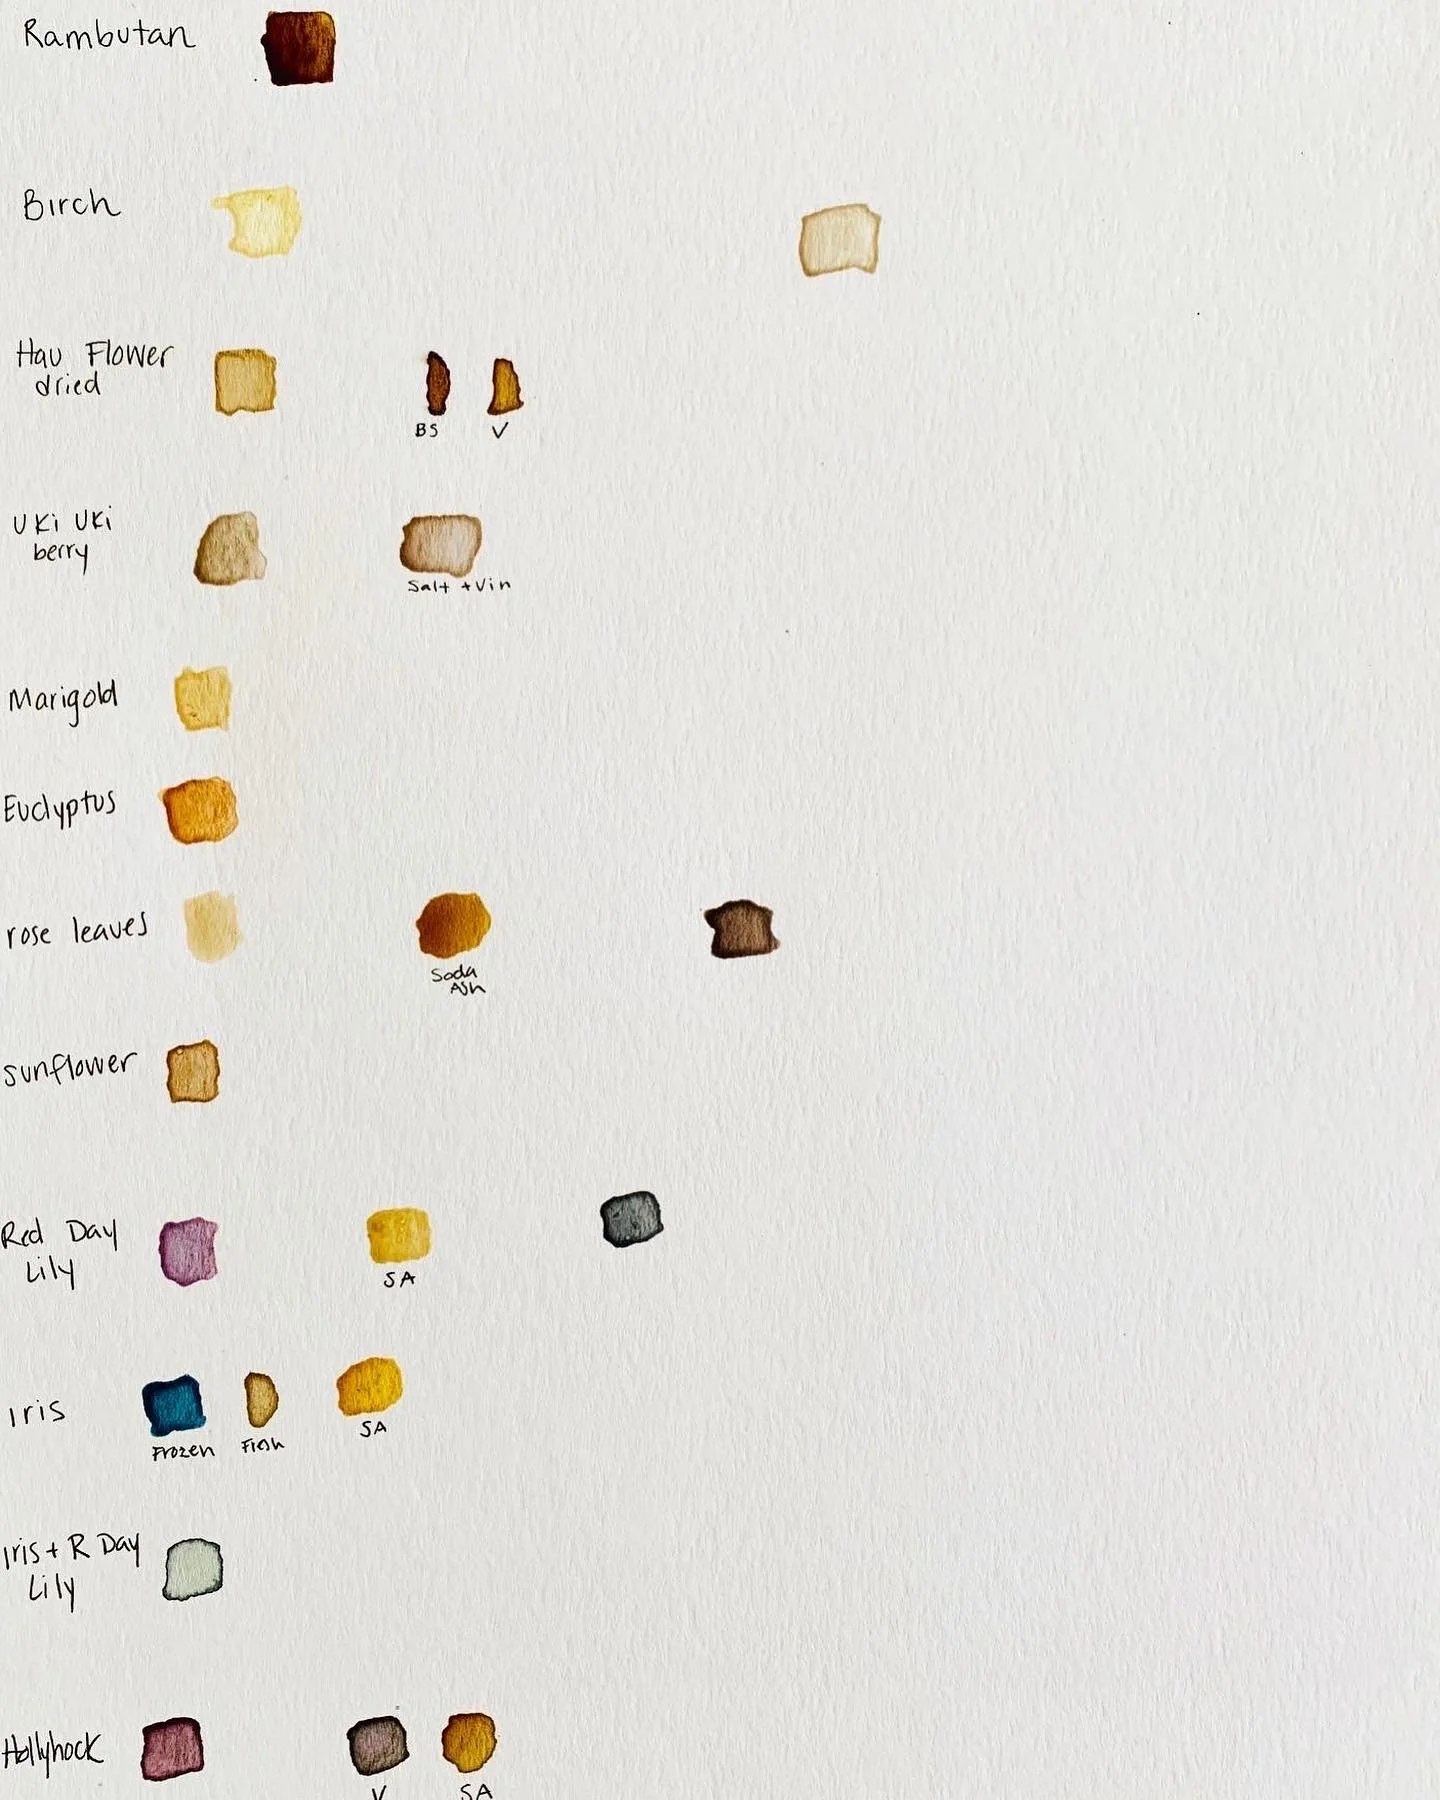 Rambutan
Birch
Hau Flower
dried
BS V
Uki Uki
berry
Salt + Vin
Marigold
Euclyptus
rose leaves
Soda
Ash
sunflower
Red Day
Lily
SA
Iris
Frozen Fresh SA
Iris + R Day
Lily
Hollyhock
V SA